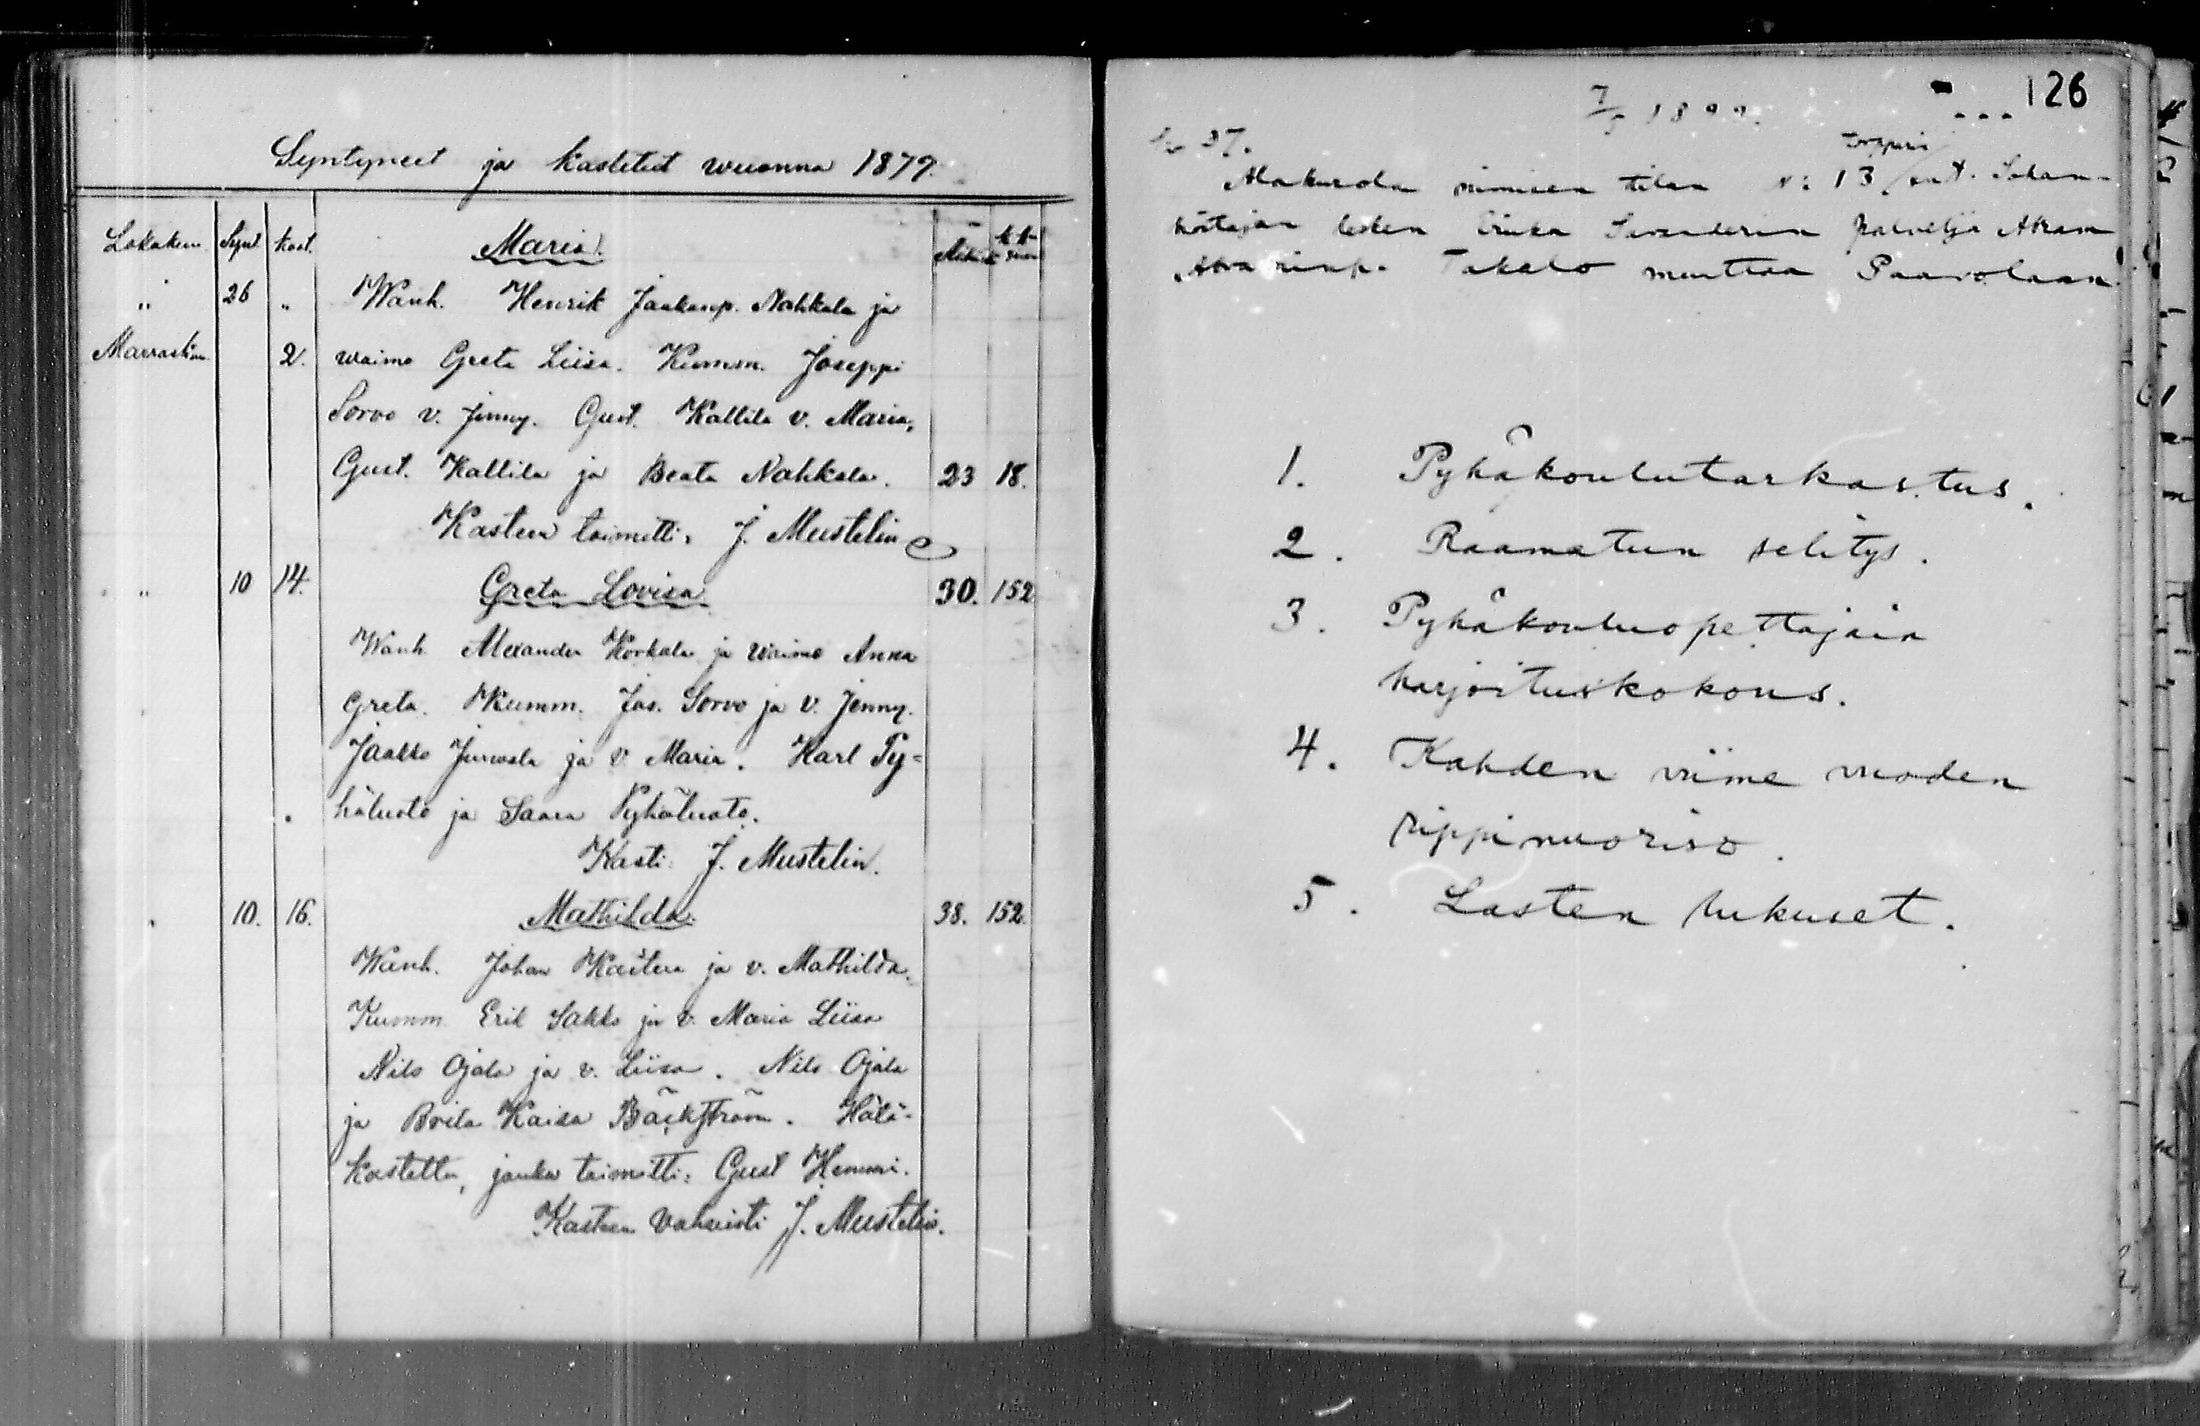 Syntyneet ja kastetut wuonna 1879.
Lokakuu Synt. Kast. Maria.
" 26 " Wanh. Henrik Jaakonp. Nahkala ja
Marraskuu 2. waimo Greta Liisa. Kumm. Joseppi
Sorvo v. Jenny. Gust. Kallila v. Maria,
Gust. Kallila ja Beata Nahkala. 23 18.
Kasteen toimitti: J. Mustelin
" 10 14. Greta Lovisa 30. 152
Wanh. Alexander Korkala ja waimo Anna
Greta. Kumm. Jos. Sorvo ja v. Jenny.
Jaakko Junnola ja v. Maria. Karl Py-
häluoto ja Saara Pyhäluoto.
Kasti: J. Mustelin.
" 10. 16. Mathilda. 38. 152.
Wanh. Johan Kasten ja v. Mathilda.
Kumm. Erik Sakko ja v. Maria Liisa
Nils Ojala ja v. Liisa. Nils Ojala
ja Brita Kaisa Bäckström. Hätä-
kastetta, jonka toimitti: Gust Hemmi.
Kasteen vahvisti J. Mustelin.
126
7/5 1899.
37.
torpari
Alakurola nimisen tilan N: 13
lesken Erika palvelija Abram
Takalo muuttaa Paavolaan.
1. Pyhäkoulutarkastus.
2. Raamatun selitys.
3. Pyhäkouluopettajain
harjoituskokous.
4. Kahden viime vuoden
rippinuoriso.
5. Lasten lukuset.